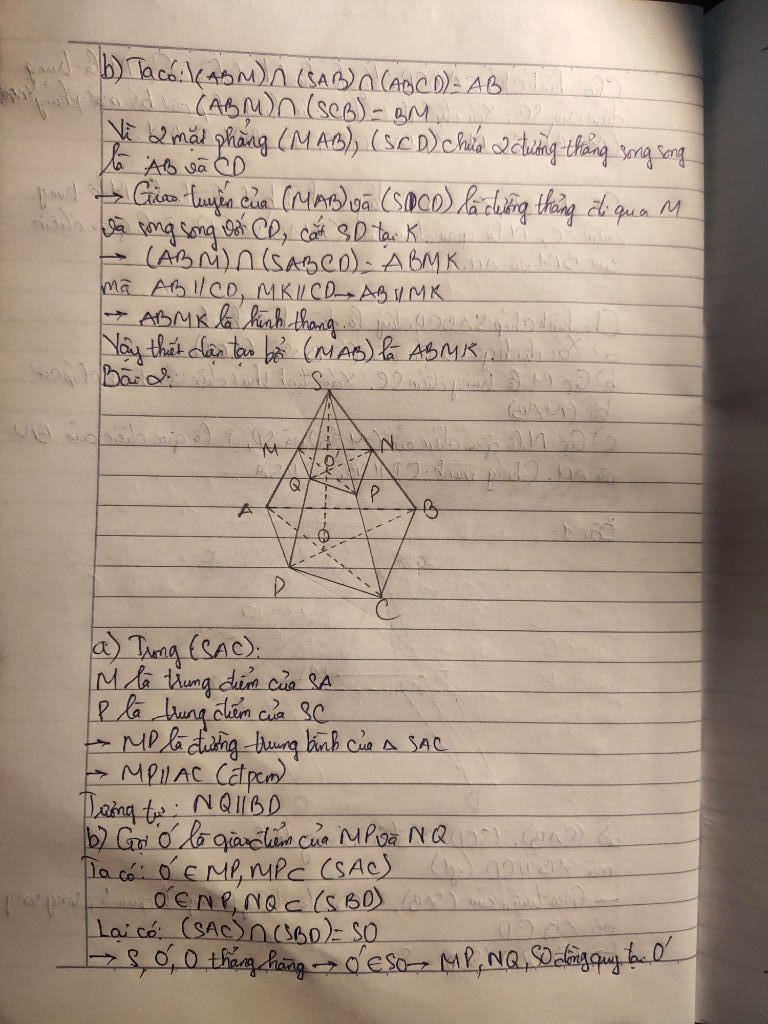 b) Ta có: (ABM)∩(SAB)∩(ABCD)=AB
(ABM)∩(SCB)=BM
Vì 2 mặt phẳng (MAB), (SCD) chứa 2 đường thẳng song song
là AB và CD
→ Giao tuyến của (MAB) và (SCD) là đường thẳng đi qua M
và song song với CD, cắt SD tại K
→ (ABM)∩(SABCD)=ABMK
mà AB//CD, MK//CD→AB//MK
→ ABMK là hình thang.
Vậy thiết diện tạo bở (MAB) là ABMK
Bài 2:
S
M N
O'
Q P
A B
O
D
C
a) Trong (SAC):
M là trung điểm của SA
P là trung điểm của SC
→ MP là đường trung bình của Δ SAC
→ MP//AC (đpcm)
Tương tự: NQ//BD
b) Gọi O' là giao điểm của MP và NQ
Ta có: O'∈MP, MP⊂(SAC)
O'∈NP, NQ⊂(SBD)
Lại có: (SAC)∩(SBD)=SO
→ S, O', O thẳng hàng → O'∈SO→ MP, NQ, SO đồng quy tại O'